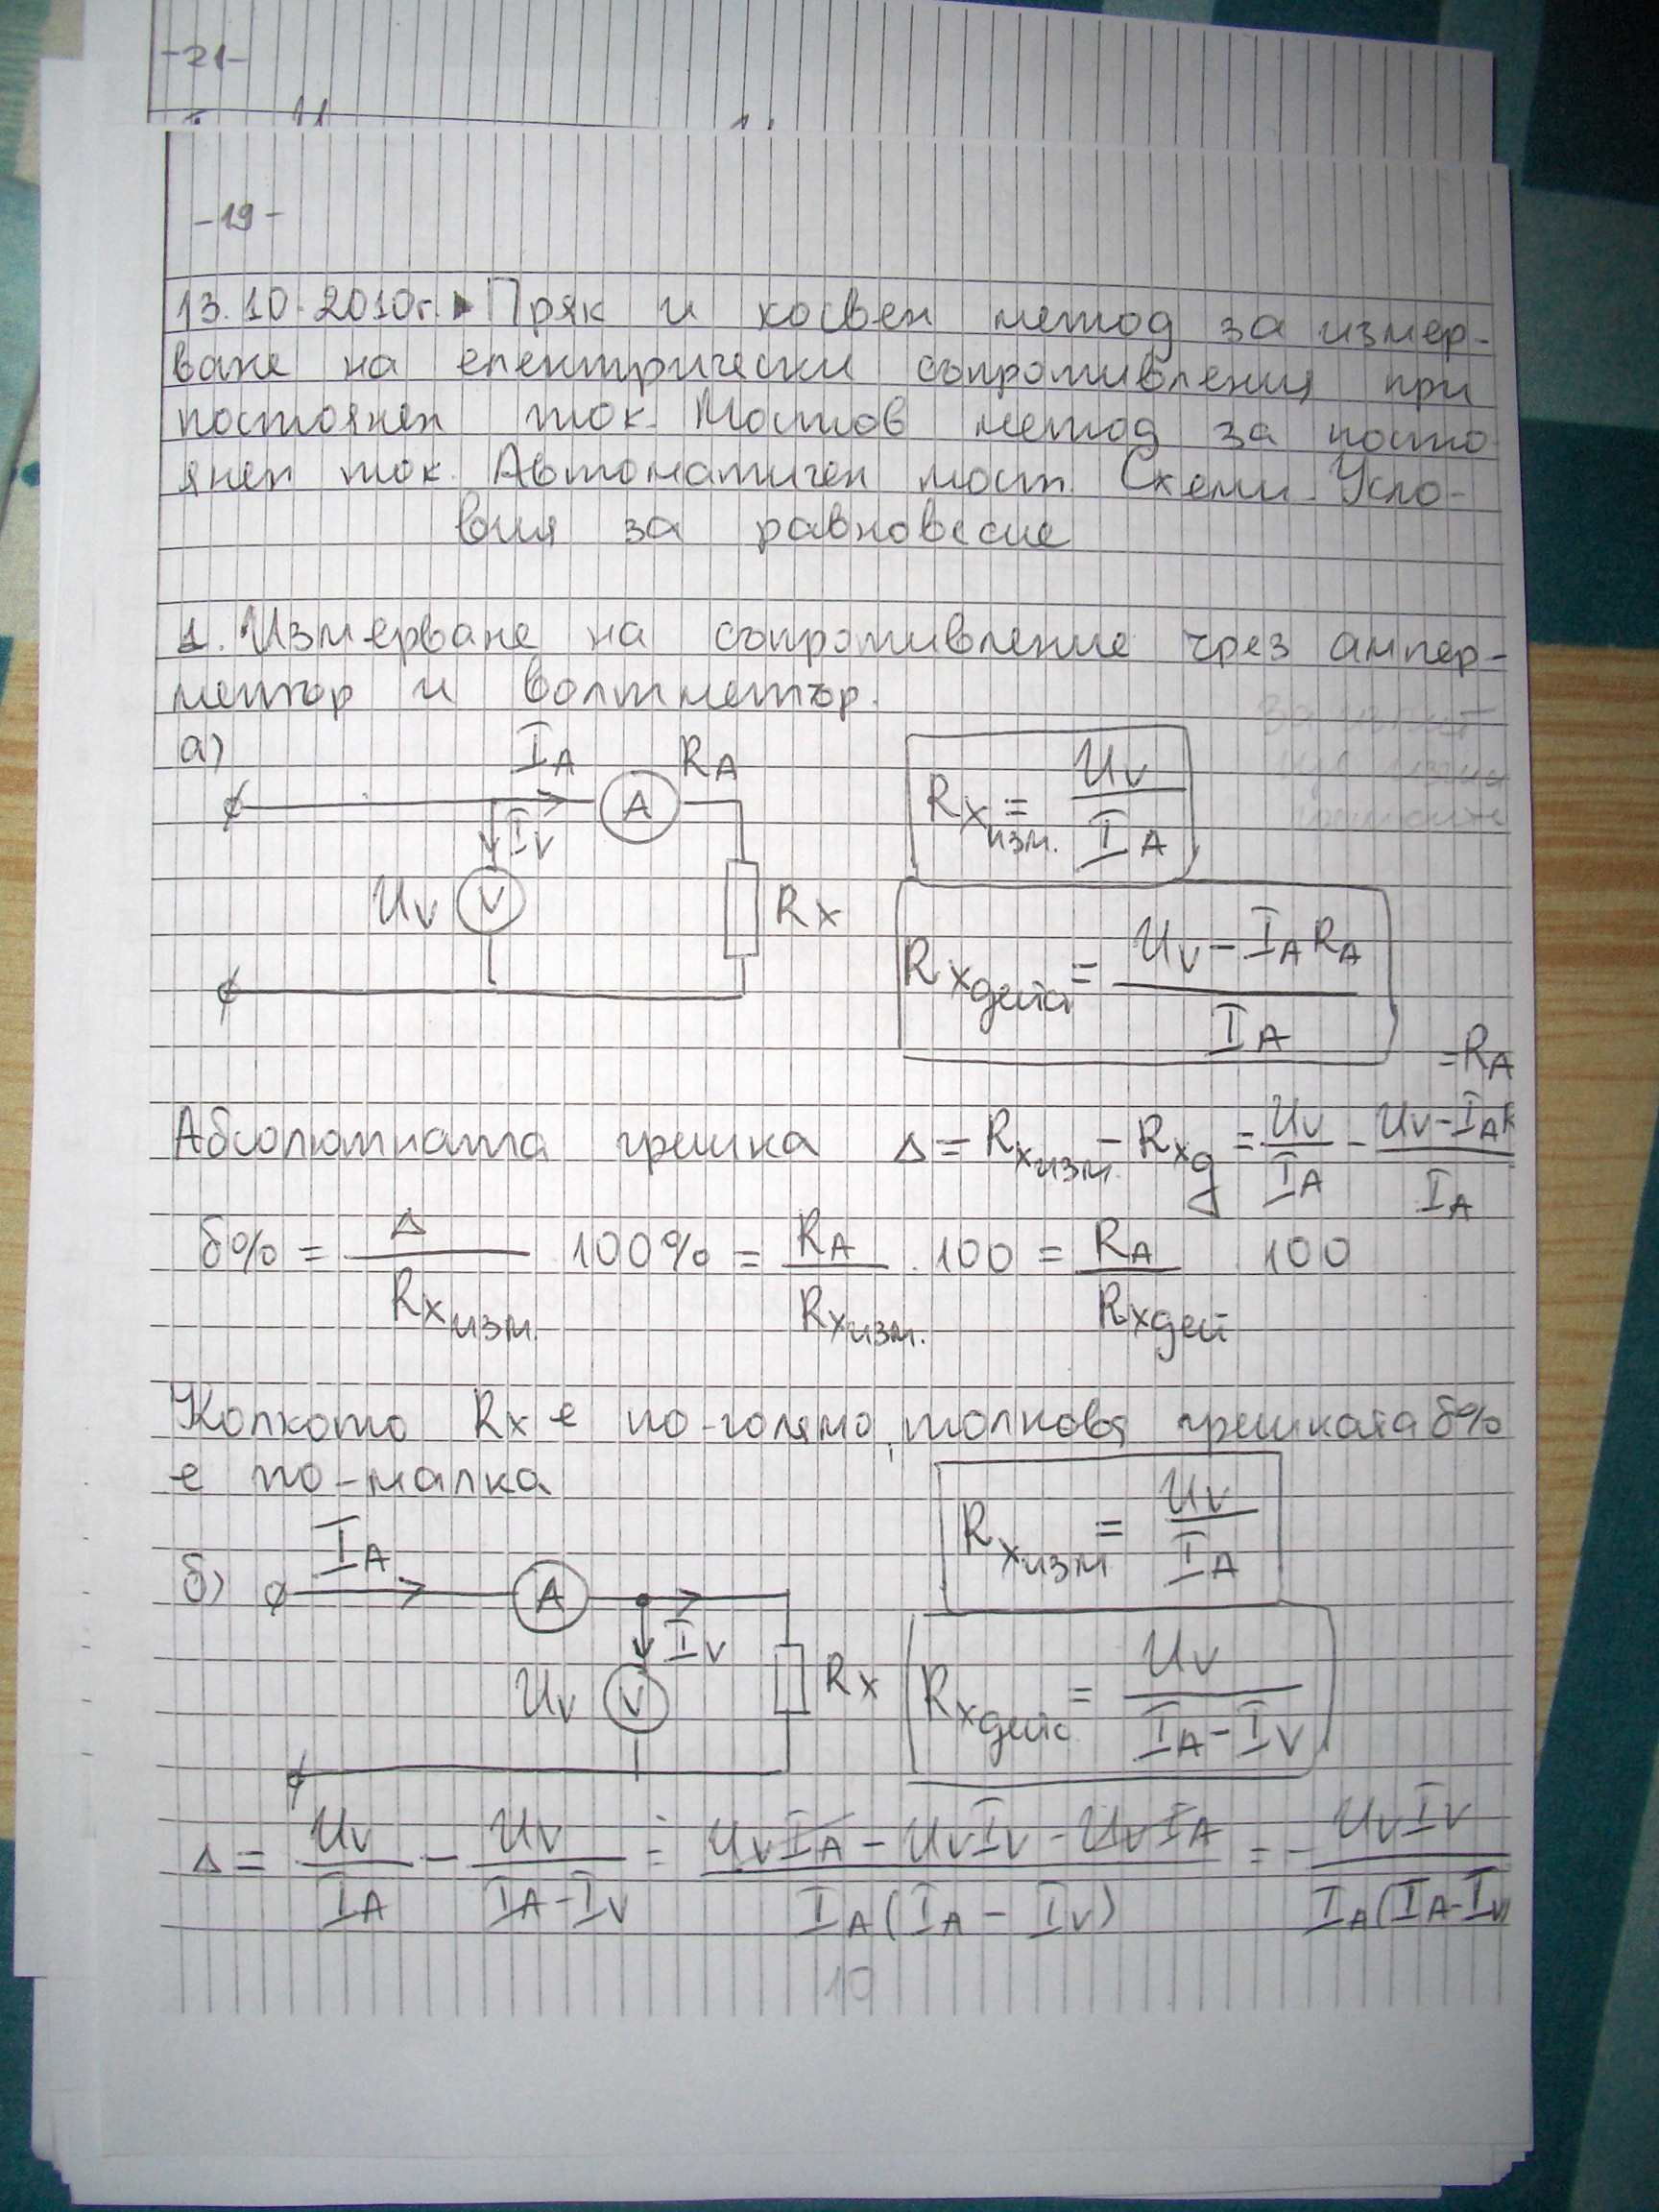 -21-
-19-
13.10.2010г. Пряк и косвен метод за измер-
ване на електрически съпротивления при
постоянен ток. Мостов метод за посто
янен ток. Автоматичен мост. Схеми. Усло-
вия за равновесие
1. Измерване на съпротивление чрез ампер-
метър и волтметър.
а) I_A R_A
A
I_V
U_V V R_X
R_Xизм. = U_V / I_A
R_Xдейст = (U_V - I_A R_A) / I_A
= R_A
Абсолютната грешка Δ = R_Xизм. - R_Xд = U_V / I_A - (U_V - I_A R) / I_A
δ% = Δ / R_Xизм. 100% = R_A / R_Xизм. . 100 = R_A / R_Xдей 100
Колкото R_X е по-голямо, толкова грешката δ%
е по-малка
б) I_A A
I_V
U_V V R_X
R_Xизм = U_V / I_A
R_Xдейс = U_V / (I_A - I_V)
Δ = U_V / I_A - U_V / (I_A - I_V) = (U_V I_A - U_V I_V - U_V I_A) / I_A (I_A - I_V) = - U_V I_V / I_A (I_A - I_V)